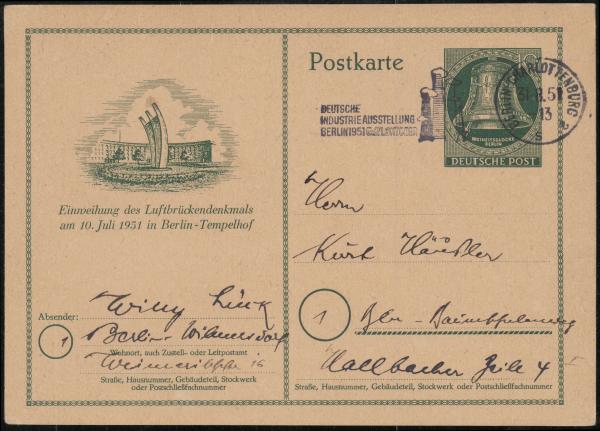 Postkarte
DEUTSCHE
INDUSTRIEAUSSTELLUNG
BERLIN 1951
BERLIN-CHARLOTTENBURG
31.8.51
13
FREIHEITSGLOCKE
BERLIN
DEUTSCHE POST
Einweihung des Luftbrückendenkmals
am 10. Juli 1951 in Berlin-Tempelhof
Herrn
Kurt
1
Bln - Baumschulenweg
Zeile 4
Absender:
Willy
1
Berlin-Wilmersdorf
Wohnort, auch Zustell- oder Leitpostamt
16
Straße, Hausnummer, Gebäudeteil, Stockwerk
oder Postschließfachnummer
Straße, Hausnummer, Gebäudeteil, Stockwerk oder Postschließfachnummer